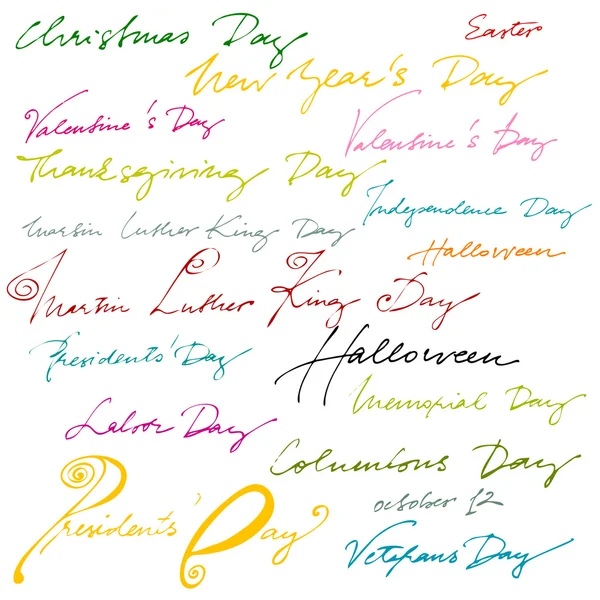 Christmas Day
Easter
New Year's Day
Valentine's Day
Valentine's Day
Thanksgiving Day
Independence Day
Martin Luther King Day
Halloween
Martin Luther King Day
Presidents' Day
Halloween
Memorial Day
Labor Day
Columbus Day
october 12
Presidents' Day
Veterans Day